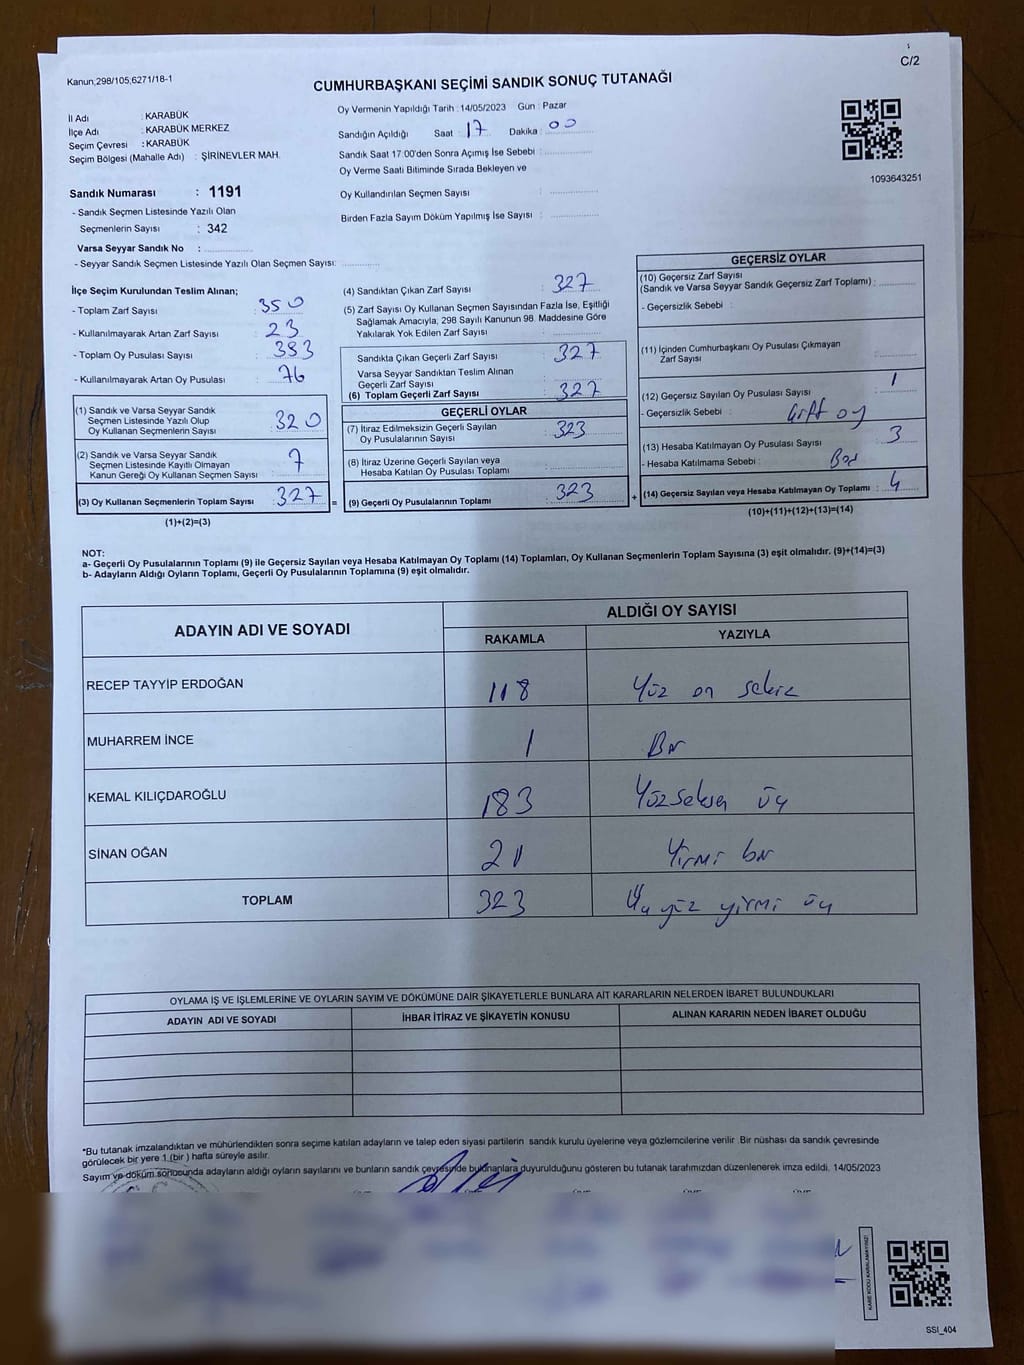 C/2
Kanun,298/105,6271/18-1
CUMHURBAŞKANI SEÇİMİ SANDIK SONUÇ TUTANAĞI
İl Adı : KARABÜK
İlçe Adı : KARABÜK MERKEZ
Seçim Çevresi : KARABÜK
Seçim Bölgesi (Mahalle Adı) : ŞİRİNEVLER MAH.
Sandık Numarası : 1191
- Sandık Seçmen Listesinde Yazılı Olan
Seçmenlerin Sayısı : 342
Varsa Seyyar Sandık No :
- Seyyar Sandık Seçmen Listesinde Yazılı Olan Seçmen Sayısı:
Oy Vermenin Yapıldığı Tarih :14/05/2023 Gün : Pazar
Sandığın Açıldığı Saat : 17 Dakika : 00
Sandık Saat 17:00'den Sonra Açımış İse Sebebi :
Oy Verme Saati Bitiminde Sırada Bekleyen ve
Oy Kullandırılan Seçmen Sayısı :
Birden Fazla Sayım Döküm Yapılmış İse Sayısı :
1093643251
İlçe Seçim Kurulundan Teslim Alınan;
- Toplam Zarf Sayısı : 350
- Kullanılmayarak Artan Zarf Sayısı : 23
- Toplam Oy Pusulası Sayısı : 383
- Kullanılmayarak Artan Oy Pusulası : 76
(1) Sandık ve Varsa Seyyar Sandık
Seçmen Listesinde Yazılı Olup
Oy Kullanan Seçmenlerin Sayısı : 320
(2) Sandık ve Varsa Seyyar Sandık
Seçmen Listesinde Kayıtlı Olmayan
Kanun Gereği Oy Kullanan Seçmen Sayısı : 7
(3) Oy Kullanan Seçmenlerin Toplam Sayısı : 327 =
(1)+(2)=(3)
(4) Sandıktan Çıkan Zarf Sayısı : 327
(5) Zarf Sayısı Oy Kullanan Seçmen Sayısından Fazla İse, Eşitliği
Sağlamak Amacıyla, 298 Sayılı Kanunun 98. Maddesine Göre
Yakılarak Yok Edilen Zarf Sayısı :
Sandıkta Çıkan Geçerli Zarf Sayısı : 327
Varsa Seyyar Sandıktan Teslim Alınan
Geçerli Zarf Sayısı :
(6) Toplam Geçerli Zarf Sayısı : 327
GEÇERLİ OYLAR
(7) İtiraz Edilmeksizin Geçerli Sayılan
Oy Pusulalarının Sayısı : 323
(8) İtiraz Üzerine Geçerli Sayılan veya
Hesaba Katılan Oy Pusulası Toplamı :
(9) Geçerli Oy Pusulalarının Toplamı : 323 +
GEÇERSİZ OYLAR
(10) Geçersiz Zarf Sayısı
(Sandık ve Varsa Seyyar Sandık Geçersiz Zarf Toplamı) :
- Geçersizlik Sebebi :
(11) İçinden Cumhurbaşkanı Oy Pusulası Çıkmayan
Zarf Sayısı :
(12) Geçersiz Sayılan Oy Pusulası Sayısı : 1
- Geçersizlik Sebebi : Çift oy
(13) Hesaba Katılmayan Oy Pusulası Sayısı : 3
- Hesaba Katılmama Sebebi : Boş
(14) Geçersiz Sayılan veya Hesaba Katılmayan Oy Toplamı : 4
(10)+(11)+(12)+(13)=(14)
NOT:
a- Geçerli Oy Pusulalarının Toplamı (9) ile Geçersiz Sayılan veya Hesaba Katılmayan Oy Toplamı (14) Toplamları, Oy Kullanan Seçmenlerin Toplam Sayısına (3) eşit olmalıdır. (9)+(14)=(3)
b- Adayların Aldığı Oyların Toplamı, Geçerli Oy Pusulalarının Toplamına (9) eşit olmalıdır.
ADAYIN ADI VE SOYADI ALDIĞI OY SAYISI
RAKAMLA YAZIYLA
RECEP TAYYİP ERDOĞAN 118 Yüz on sekiz
MUHARREM İNCE 1 Bir
KEMAL KILIÇDAROĞLU 183 Yüzseksen üç
SİNAN OĞAN 21 Yirmi bir
TOPLAM 323 Üç yüz yirmi üç
OYLAMA İŞ VE İŞLEMLERİNE VE OYLARIN SAYIM VE DÖKÜMÜNE DAİR ŞİKAYETLERLE BUNLARA AİT KARARLARIN NELERDEN İBARET BULUNDUKLARI
ADAYIN ADI VE SOYADI İHBAR İTİRAZ VE ŞİKAYETİN KONUSU ALINAN KARARIN NEDEN İBARET OLDUĞU
*Bu tutanak imzalandıktan ve mühürlendikten sonra seçime katılan adayların ve talep eden siyasi partilerin sandık kurulu üyelerine veya gözlemcilerine verilir .Bir nüshası da sandık çevresinde
görülecek bir yere 1 (bir ) hafta süreyle asılır.
Sayım ve döküm sonucunda adayların aldığı oyların sayılarını ve bunların sandık çevresinde bulunanlara duyurulduğunu gösteren bu tutanak tarafımızdan düzenlenerek imza edildi. 14/05/2023
KARE KODU KARALAMAYINIZ!
SSI_404